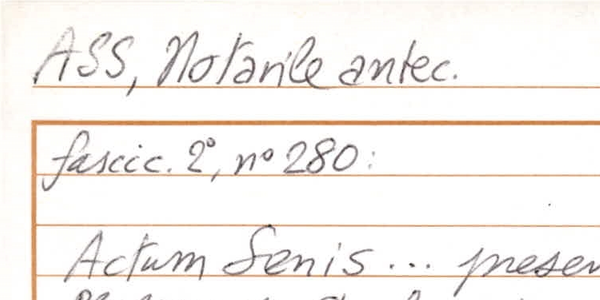 ASS, Notarile antec.
fascic. 2°, n° 280:
Actum Senis ... presen